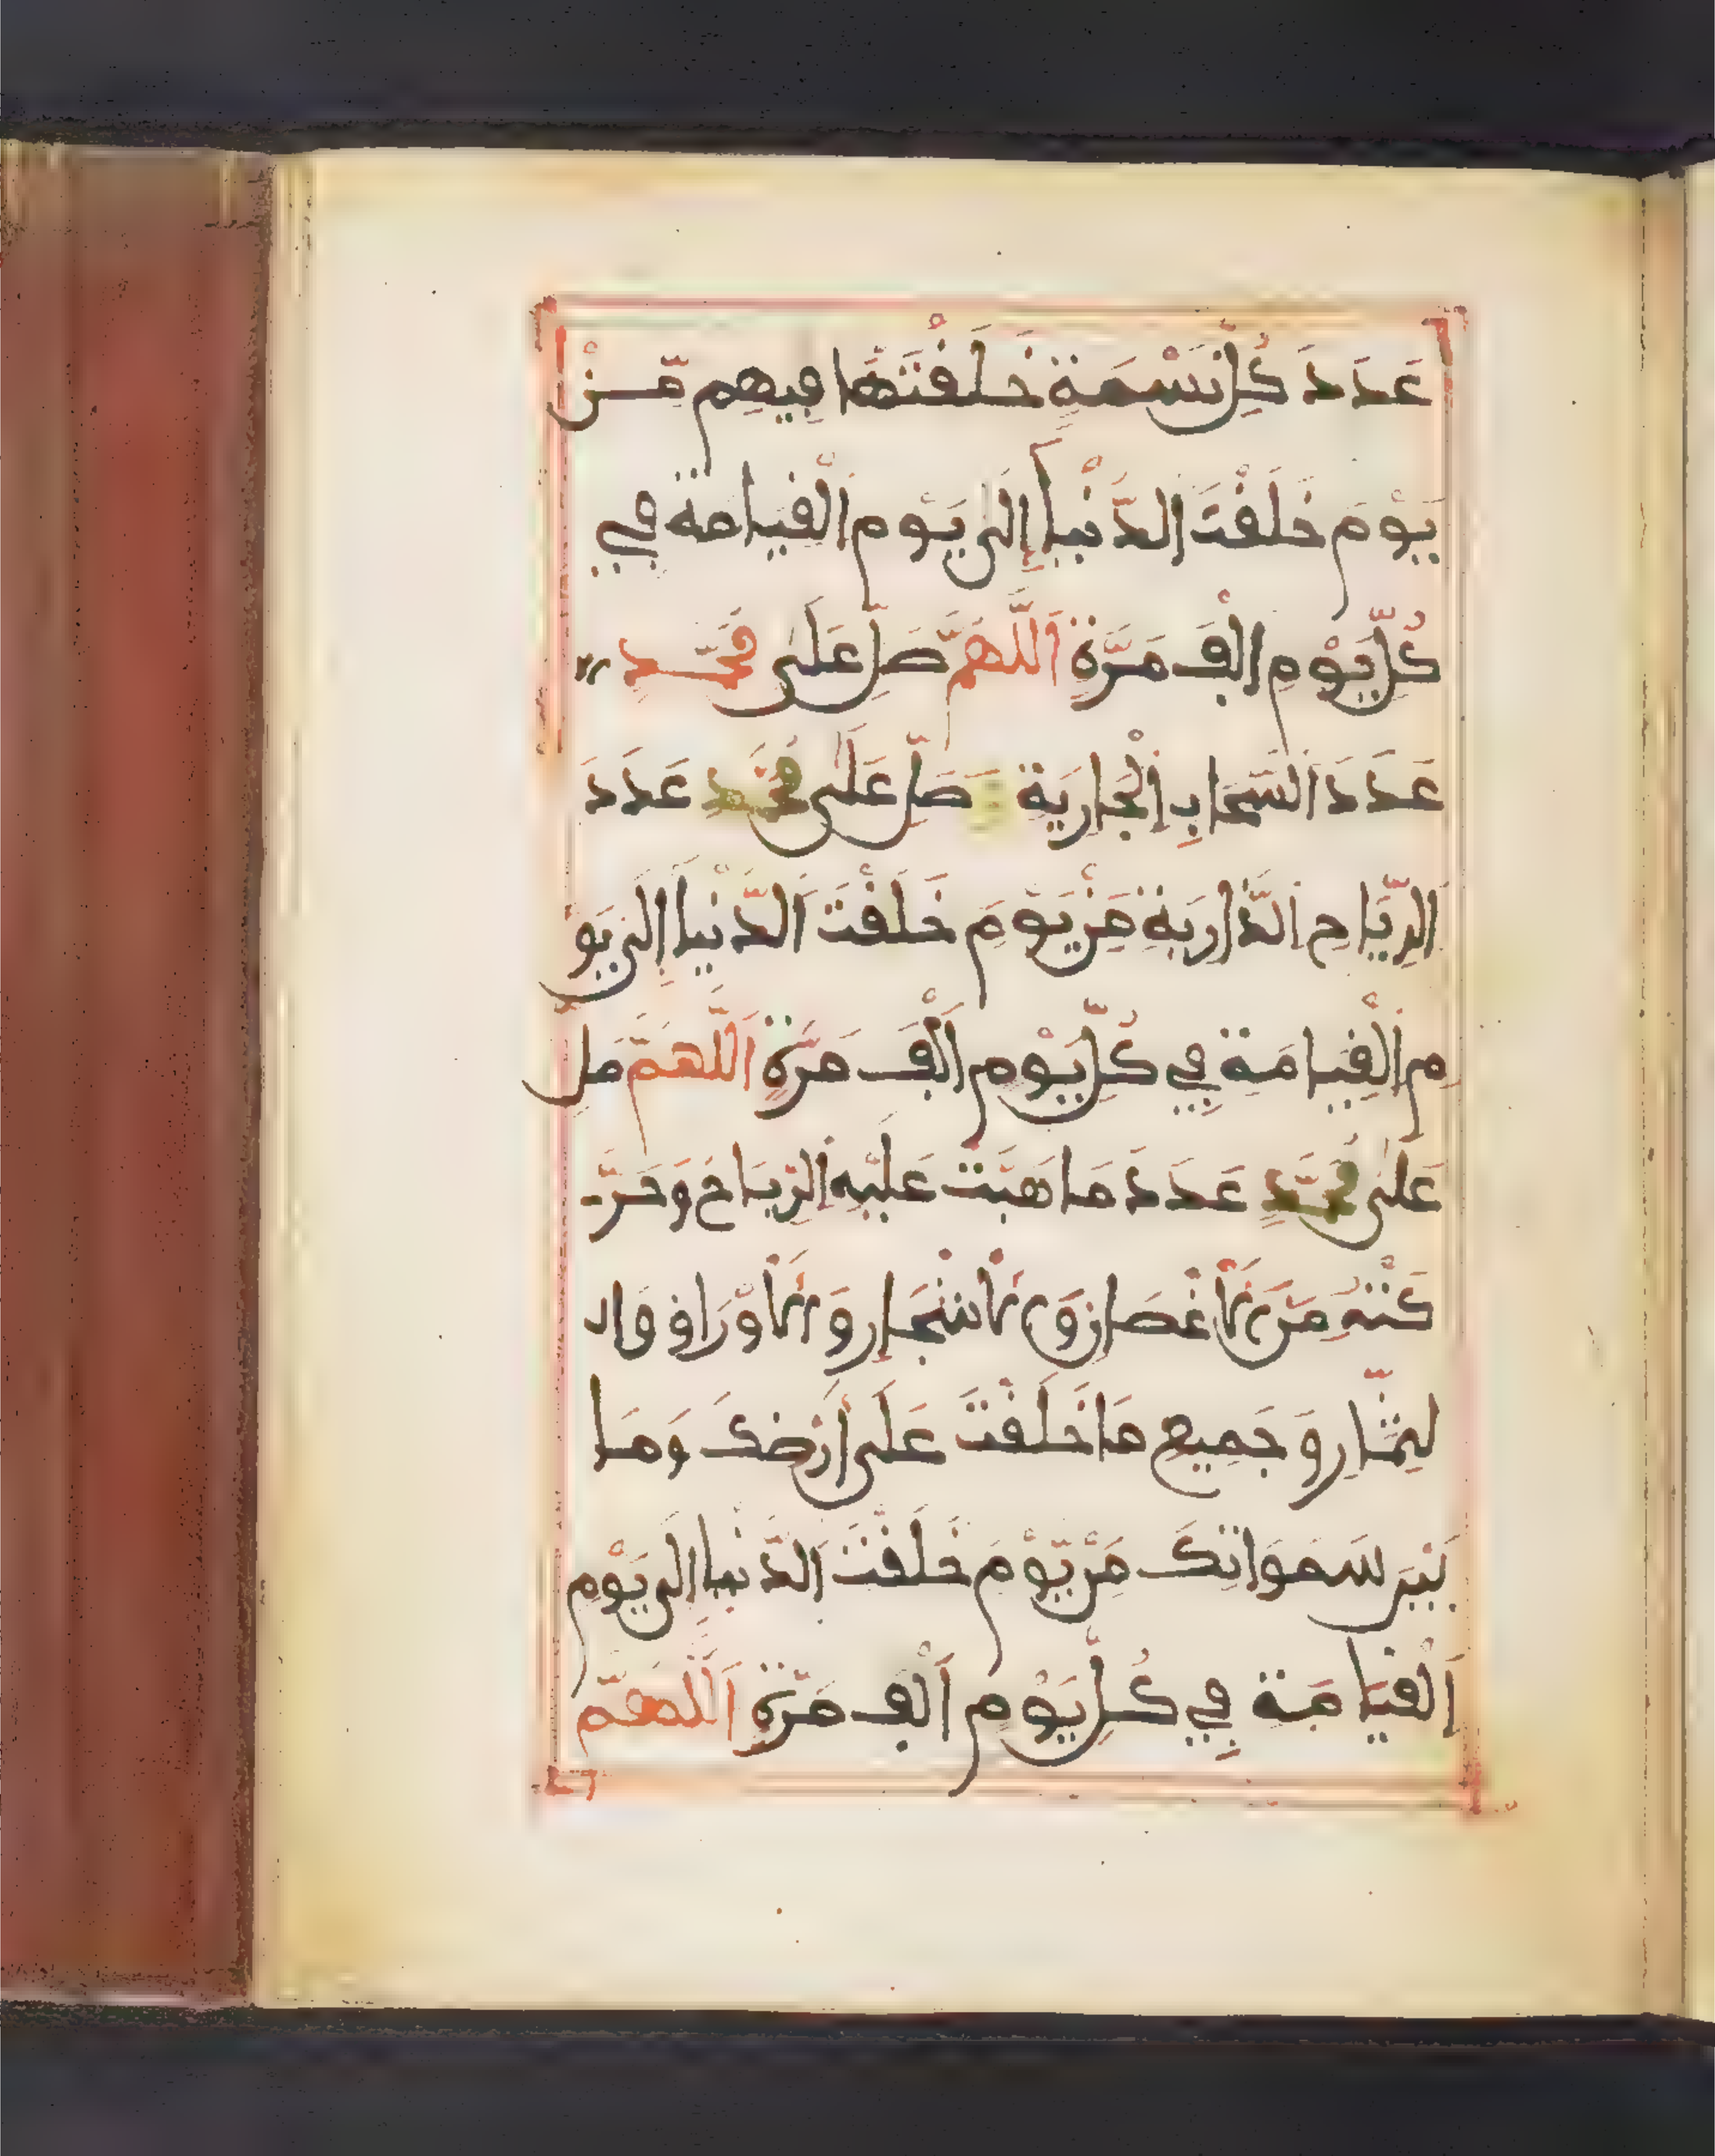 عَدَدَ كُلِّ نَسْمَةٍ خَلَقْتَهَا فِيهِم مِّنْ
يَوْمَ خَلَقْتَ الدُّنْيَا إِلَى يَوْمِ الْقِيَامَةِ فِي
كُلِّ يَوْمٍ أَلْفَ مَرَّةٍ اَللَّهُمَّ صَلِّ عَلَى مُحَمَّدٍ
عَدَدَ السَّحَابِ الْجَارِيَةِ وَصَلِّ عَلَى مُحَمَّدٍ عَدَدَ
الرِّيَاحِ الذَّارِيَةِ مِنْ يَوْمَ خَلَقْتَ الدُّنْيَا إِلَى يَوْ
مِ الْقِيَامَةِ فِي كُلِّ يَوْمٍ أَلْفَ مَرَّةٍ اَللَّهُمَّ صَلِّ
عَلَى مُحَمَّدٍ عَدَدَ مَا هَبَّتْ عَلَيْهِ الرِّيَاحُ وَحَرَّ
كَتْهُ مِنَ الْأَغْصَانِ وَالْأَشْجَارِ وَالْأَوْرَاقِ وَا
لثِّمَارِ وَجَمِيعِ مَا خَلَقْتَ عَلَى أَرْضِكَ وَمَا
بَيْنَ سَمَوَاتِكَ مِنْ يَوْمَ خَلَقْتَ الدُّنْيَا إِلَى يَوْمِ
الْقِيَامَةِ فِي كُلِّ يَوْمٍ أَلْفَ مَرَّةٍ اَللَّهُمَّ